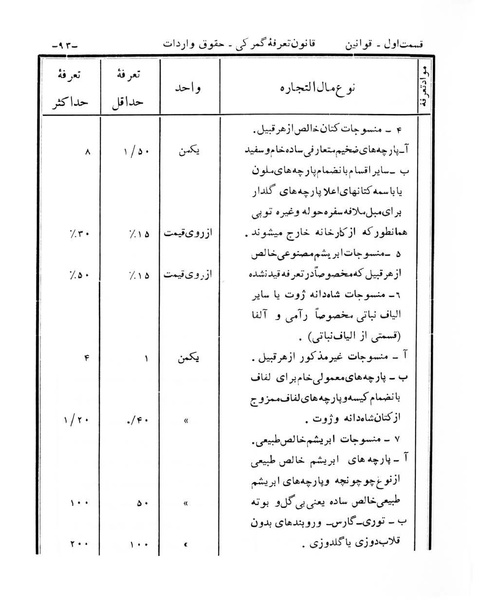 قسمت اول ـ قوانین    قانون تعرفهٔ گمرکی ـ حقوق واردات    ـ۹۳ـ
مواد تعرفه    نوع مال‌التجاره    واحد    تعرفهٔ حداقل    تعرفهٔ حداکثر
۴ ـ منسوجات کتان خالص از هر قبیل.
آ ـ پارچه‌های ضخیم متعارفی ساده خام و سفید    یکمن    ۱/۵۰    ۸
ب ـ سایر اقسام بانضمام پارچه‌های ملون
یا باسمه کتانهای اعلا پارچه‌های گلدار
برای مبل ملافه سفره حوله وغیره توپی
همانطور که از کارخانه خارج میشوند.    از روی قیمت    ۱۵٪    ۳۰٪
۵ ـ منسوجات ابریشم مصنوعی خالص
از هر قبیل که مخصوصاً در تعرفه قید نشده    از روی قیمت    ۱۵٪    ۵۰٪
۶ ـ منسوجات شاه‌دانه ژوت یا سایر
الیاف نباتی مخصوصاً رآمی و آلفا
(قسمتی از الیاف نباتی).
آ ـ منسوجات غیر مذکور از هر قبیل.    یکمن    ۱    ۴
ب ـ پارچه‌های معمولی خام برای لفاف
بانضمام کیسه و پارچه‌های لفاف ممزوج
از کتان شاه‌دانه و ژوت.    »    ۰/۴۰    ۱/۲۰
۷ ـ منسوجات ابریشم خالص طبیعی.
آ ـ پارچه های ابریشم خالص طبیعی
از نوع چوچونچه و پارچه‌های ابریشم
طبیعی خالص ساده یعنی بی گل و بوته    »    ۵۰    ۱۰۰
ب ـ توری ـ گارس ـ و روبندهای بدون
قلاب‌دوزی یا گلدوزی.    »    ۱۰۰    ۲۰۰